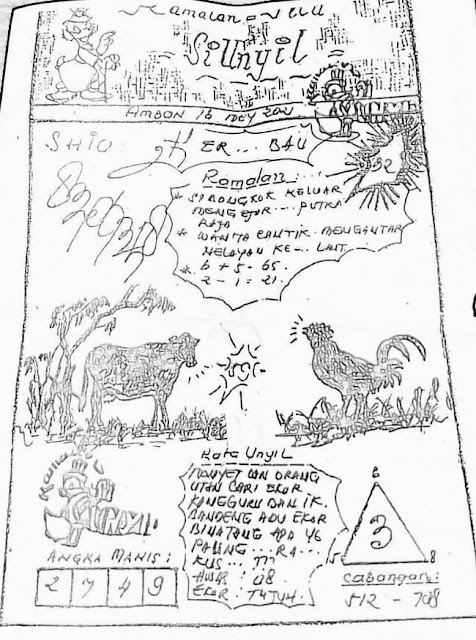 Ramalan
Si Unyil
AMBON 16
SHIO:
ER... BAU
32
Ramalan:
* SI BONGKOK KELUAR
MENGEJAR... PUTRA
RAJA
* WANITA CANTIK MENGANTAR
NELAYAN KE... LAUT
* 6 + 5 = 65.
2 - 1 = 21.
Kata Unyil
MONYET DAN ORANG
UTAN CARI EKOR
KANGGURU DAN IK.
BANDENG ADU EKOR
BINATANG APA YG
PALING... RA...
KUS... ???
AWAS: 08
EKOR: TUJUH.
ANGKA MANIS:
2 7 4 9
6
3
8
Cabangan:
512 - 708